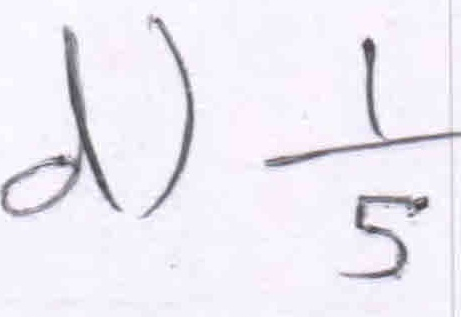 d) 1/5